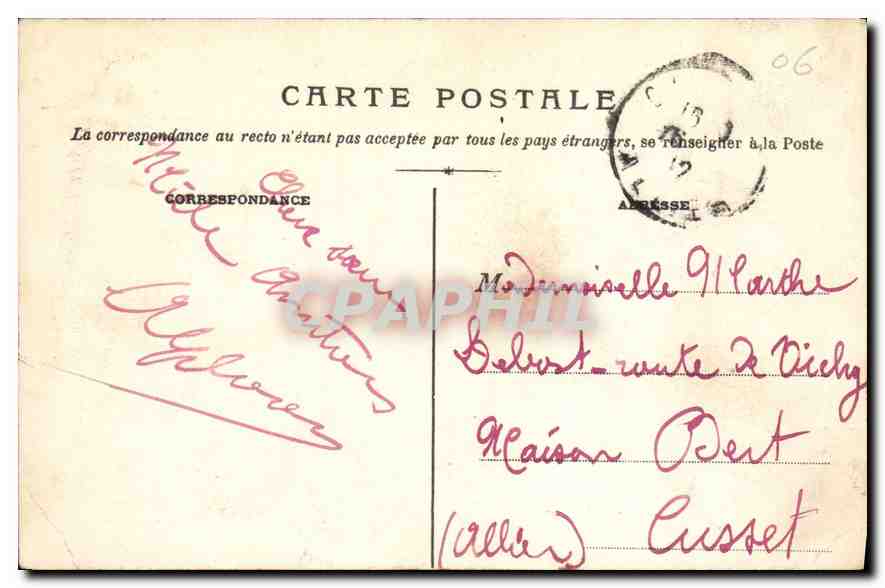 06
CARTE POSTALE
La correspondance au recto n'étant pas acceptée par tous les pays étrangers, se renseigner à la Poste
CORRESPONDANCE
Chère sœur
Mille Amitiés
ADRESSE
Mademoiselle Marthe
Debost-route de Vichy
Maison Bert
(Allier) Cusset
CPAPHIL